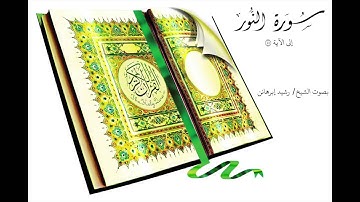 سورة النور
إلى الآية
بصوت الشيخ / رشيد إبرهاتن
القرآن الكريم